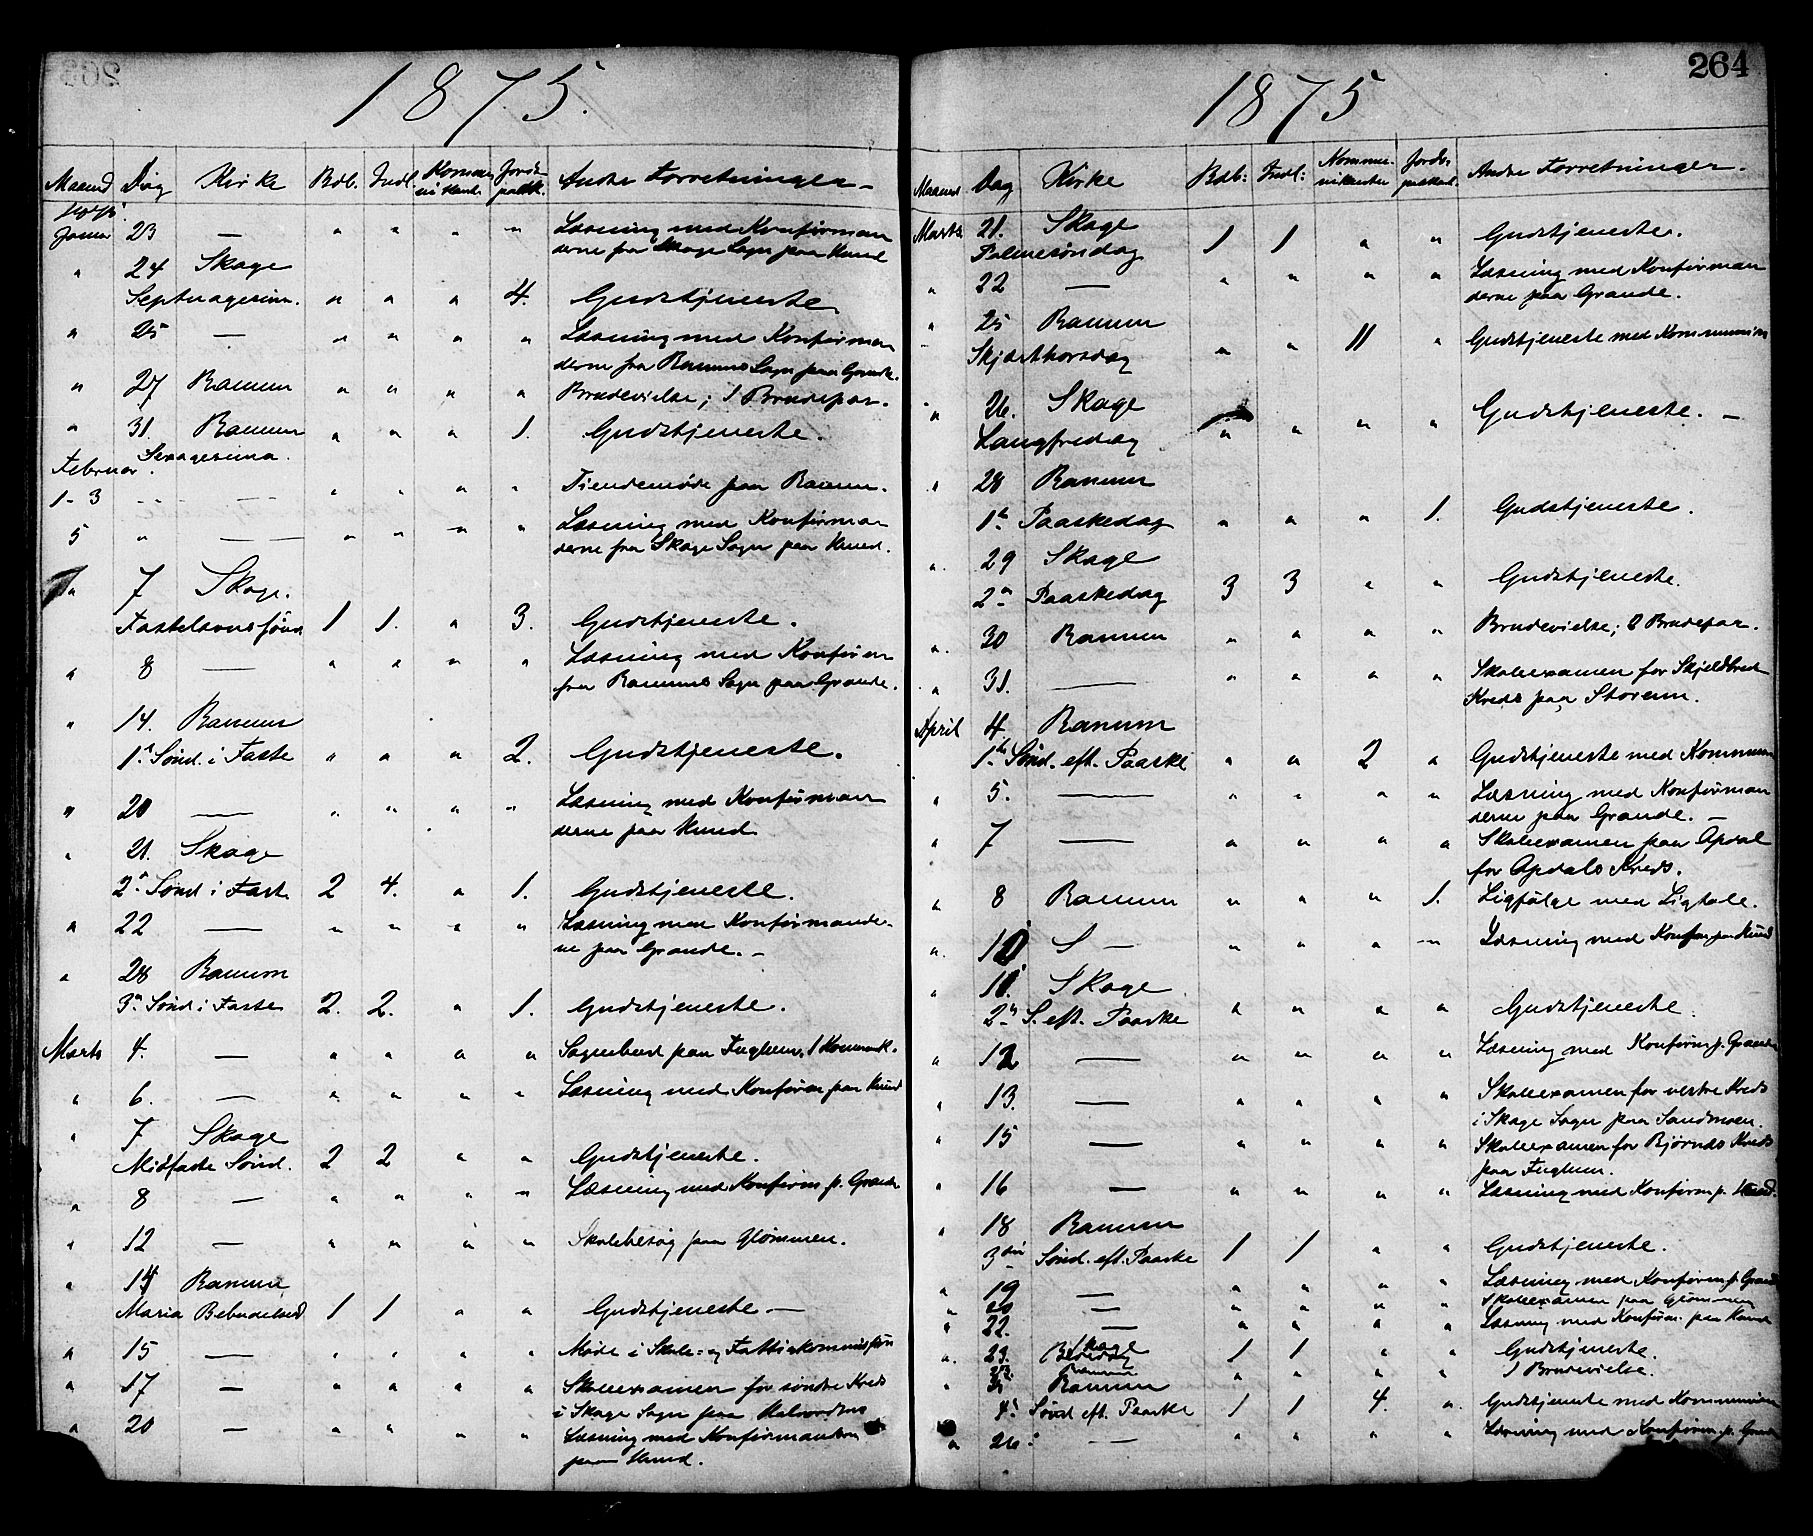 1875.
Maaned Dag Kirke Bdb. Indl. Kommunikant. Jordspaakk. Andre Forretninger —
Januar 23 — " " " " Læsning med Konfirman
derne fra Skage Sogn paa Hund
" 24 Skage
Septuagesima. " " " 4. Gudstjeneste
" 25 — " " " " Læsning med Konfirman
derne fra Ranums Sogn paa Grande.
" 27 Ranum " " " " Brudevielse; 1 Brudepar.
" 31. Ranum " " " 1. Gudstjeneste.
Sexagesima.
Februar
1-3 — " " " " Tiendemøde paa Ranum.
5 " — " " " " Læsning med Konfirman
derne fra Skage Sogn paa Hund.
" 7 Skage.
Fastelavns Sønd 1 1. " 3. Gudstjeneste.
" 8 — " " " " Læsning med Konfirm
fra Ranums Sogn paa Grande.
" 14. Ranum
1. Sønd. i Faste " " " 2. Gudstjeneste.
" 20 — " " " " Læsning med Konfirman
derne paa Hund
" 21. Skage
2. Sønd i Fast 2 4. " 1. Gudstjeneste.
" 22 — " " " " Læsning med Konfirmande-
ne paa Grande. —
" 28 Ranum
3. Sønd. i Faste 2. 2. " 1. Gudstjeneste.
Marts 4. — " " " " Sognebud paa Fuglem, 1 Kommunik.
" 6. — " " " " Læsning med Konfirm paa Hund
" 7 Skage
Midfaste Sønd. 2 2 " " Gudstjeneste.
" 8 — " " " " Læsning med Konfirm p. Grande
" 12 — " " " " Skolebesøg paa Glømmen.
" 14 Ranum
Maria Bebudelses 1 1 " " Gudstjeneste —
" 15 — " " " " Møde i Skole- og Fattigkommission
" 17 — " " " " Skoleexamen for søndre Kreds
i Skage Sogn paa
" 20 — " " " " Læsning med Konfirmanderne
paa Hund.
264
1875
Maaned Dag Kirke Bdb: Indl: Kommunikanter Jordspaakast. Andre Forretninger —
Marts 21. Skage
Palmesøndag 1 1 " " Gudstjeneste.
" 22 — " " " " Læsning med Konfirman
derne paa Grande.
" 25 Ranum
Skjærthorsdag " " 11 " Gudstjeneste med Kommunion
" 26. Skage
Langfredag " " " " Gudstjeneste. —
" 28 Ranum
1. Paaskedag " " " 1. Gudstjeneste.
" 29 Skage
2. Paaskedag 3 3 " " Gudstjeneste.
" 30 Ranum " " " " Brudevielse; 2 Brudepar.
" 31. — " " " " Skoleexamen for Skjeldbred
Kreds paa Storem.
April 4 Ranum
1. Sønd. eft. Paaske " " 2 " Gudstjeneste med Kommun
" 5. — " " " " Læsning med Konfirman
derne paa Grande. —
" 7 — " " " " Skoleexamen paa Apdal
for Apdals Kreds.
" 8 Ranum " " " 1. Ligfølge med Ligtale.
" 10 S — " " " " Læsning med Konfirm paa Hund
" 11. Skage
2. S. eft. Paaske " " " " Gudstjeneste.
" 12 — " " " " Læsning med Konfirm p. Grande
" 13. — " " " " Skoleexamen for vestre Kreds
i Skage Sogn paa Sandmoen.
" 15 — " " " " Skoleexamen for Bjørnes Kreds
paa Fuglem.
" 16 — " " " " Læsning med Konfirm p. Hund.
" 18 Ranum
3die Sønd. eft. Paaske 1 1 " " Gudstjeneste.
" 19 — " " " " Læsning med Konfirm p. Grande
" 20 — " " " " Skoleexamen paa Glømmen
" 22. — " " " " Læsning med Konfirm. paa Hund
" 23. Skage
Bededag 1 1 " " Gudstjeneste.
" Ranum " " " " 1 Brudevielse.
4. Sønd eft. Paaske 1 1 4. " Gudstjeneste med Kommunion
" 26. — " " " " Læsning med Konfirm. p. Grande